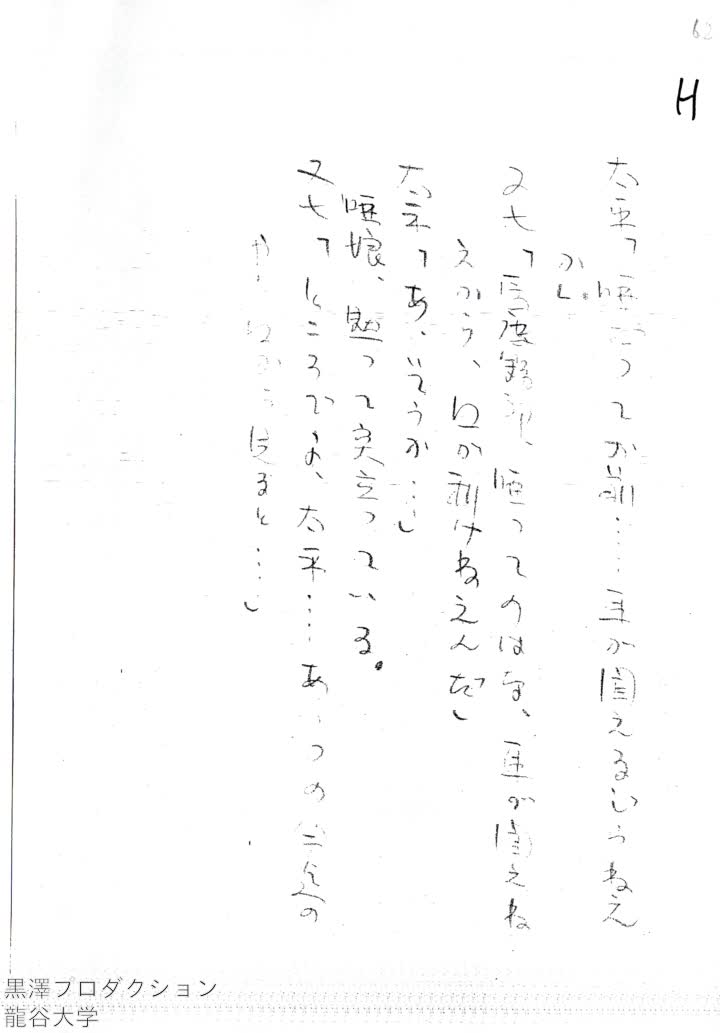 62
H
太平「唖だってお前……耳が聞えるじゃねえ
か」
又七「馬鹿野郎、唖ってのはな、耳が聞えね
えから、口が利けねえんだ」
太平「あ、そうか…」
唖娘、黙って突立っている。
又七「ところでよ、太平……あいつの
から見ると…」
黒澤プロダクション
龍谷大学